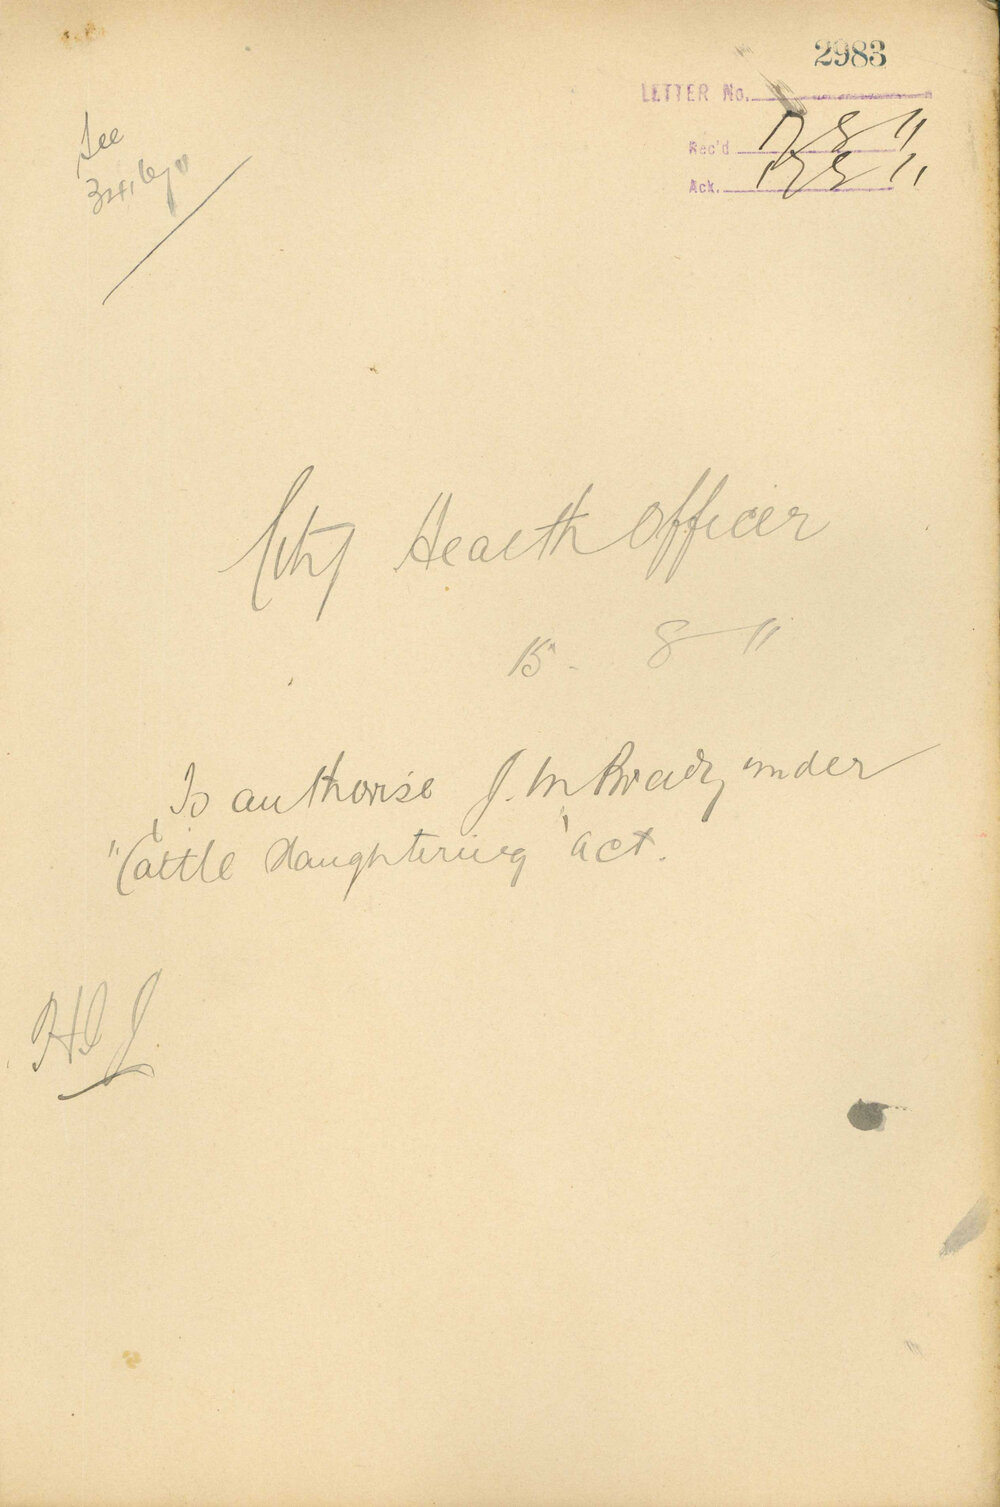 2983
LETTER No.
Rec'd 17 8 11
Ack. 17 8 11
See
City Health Officer
15 - 8 - 11
To authorise J. M Brady under
"Cattle Slaughtering" act.